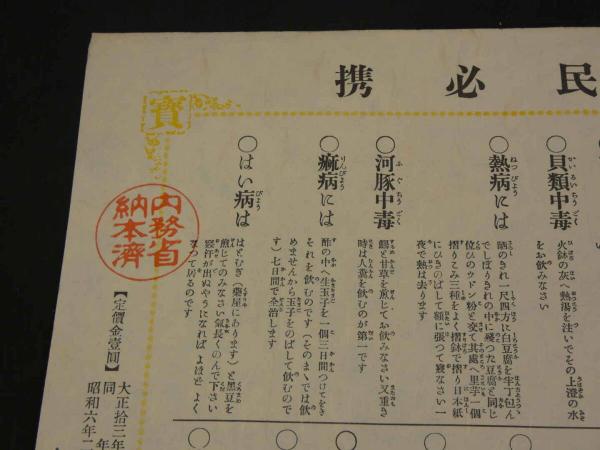 民必携
寶
○貝類中毒
火鉢の灰へ熱湯を注いでその上澄の水
をお飲みなさい
○熱病には
晒のきれ一尺四方に白豆腐を半丁包ん
でしぼりきれの中に殘つた豆腐と同じ
位ひのウドン粉と交て其處へ里芋一個
摺りこみ三種をよく摺鉢で摺り日本紙
にひきのばして額に張つて寢なさい一
夜で熱は去ります
○河豚中毒
鯣と甘草を煎じてお飲みなさい又重き
時は人糞を飲むのが第一です
○痳病には
酢の中へ生玉子を一個三日間つけてをき
それを飲むのです(そのまゝでは飲
めませんから玉子をのばして飲むので
す)七日間で全治します
○はい病は
はとむぎ(藥屋にあります)と黒豆を
煎じてのみなさい氣長くのんで下さい
寢汗が出ぬやうになればよほどよく
なつて居るのです
内務省
納本濟
【定價金壹圓】
大正拾三年
同年
昭和六年二